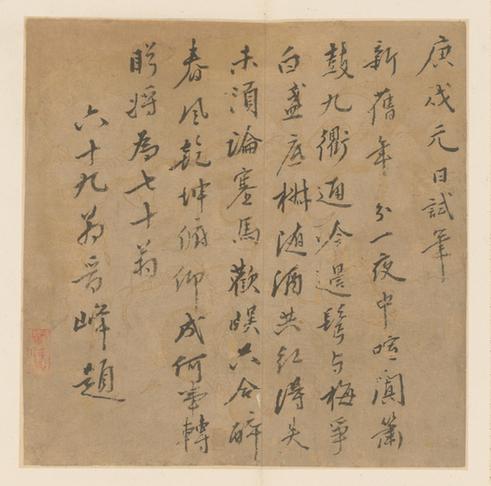 庚戌元日試筆
新舊年分一夜中喧闐簫
鼓九衢通吟邊鬢与梅爭
白盞底椒隨酒共紅得失
未須論塞馬歡娛只合醉
春風乾坤俯仰成何事轉
眄將為七十翁
六十九翁峰題